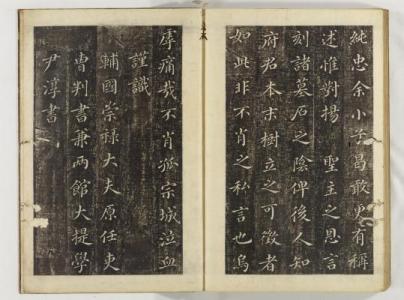 純忠余小子曷敢更有稱
述惟對揚 聖主之恩言
刻諸墓石之陰俾後人知
府君本末樹立之可徵者
如此非不肖之私言也烏
虖痛哉不肖孤宗城泣血
謹識
輔國崇祿大夫原任吏
曹判書兼兩館大提學
尹淳書